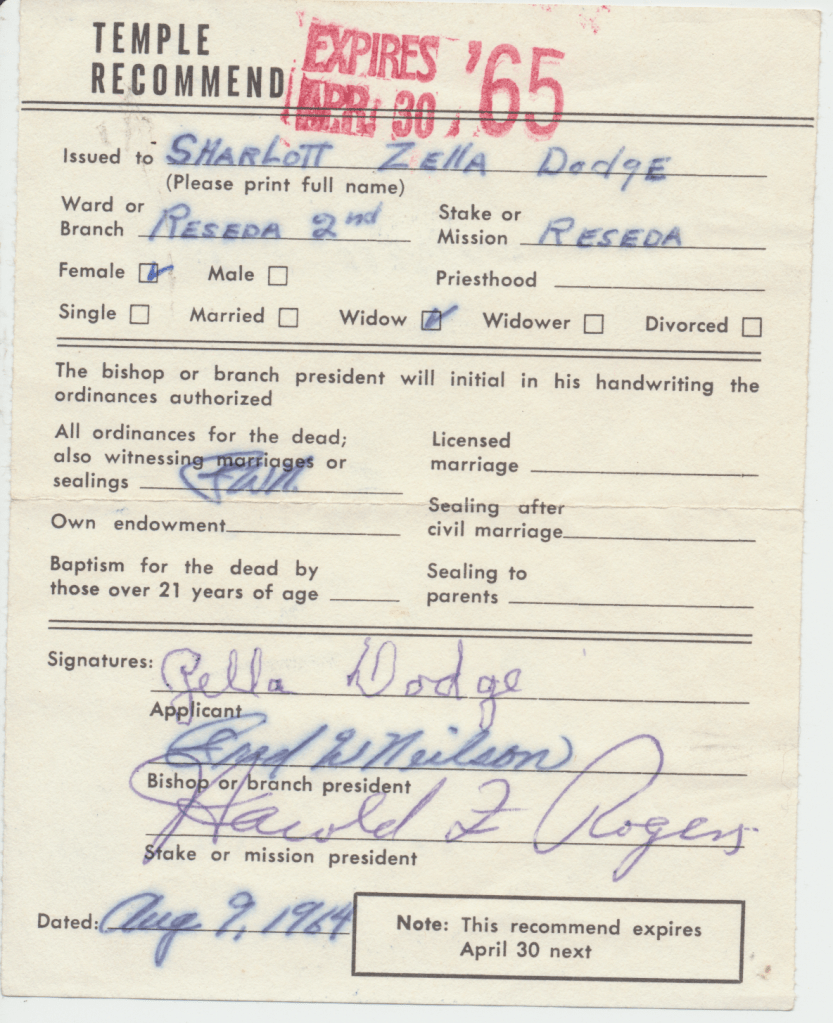 TEMPLE
RECOMMEND
EXPIRES
APR 30 '65
Issued to SHARLOTT ZEllA DodgE
(Please print full name)
Ward or
Branch RESEDA 2nd
Stake or
Mission RESEDA
Female ☑ Male ☐ Priesthood
Single ☐ Married ☐ Widow ☑ Widower ☐ Divorced ☐
The bishop or branch president will initial in his handwriting the
ordinances authorized
All ordinances for the dead;
also witnessing marriages or
sealings FWN
Licensed
marriage
Own endowment
Sealing after
civil marriage
Baptism for the dead by
those over 21 years of age
Sealing to
parents
Signatures: Zella Dodge
Applicant
Fred W Neilson
Bishop or branch president
Harold F Rogers
Stake or mission president
Dated: Aug 9, 1964
Note: This recommend expires
April 30 next